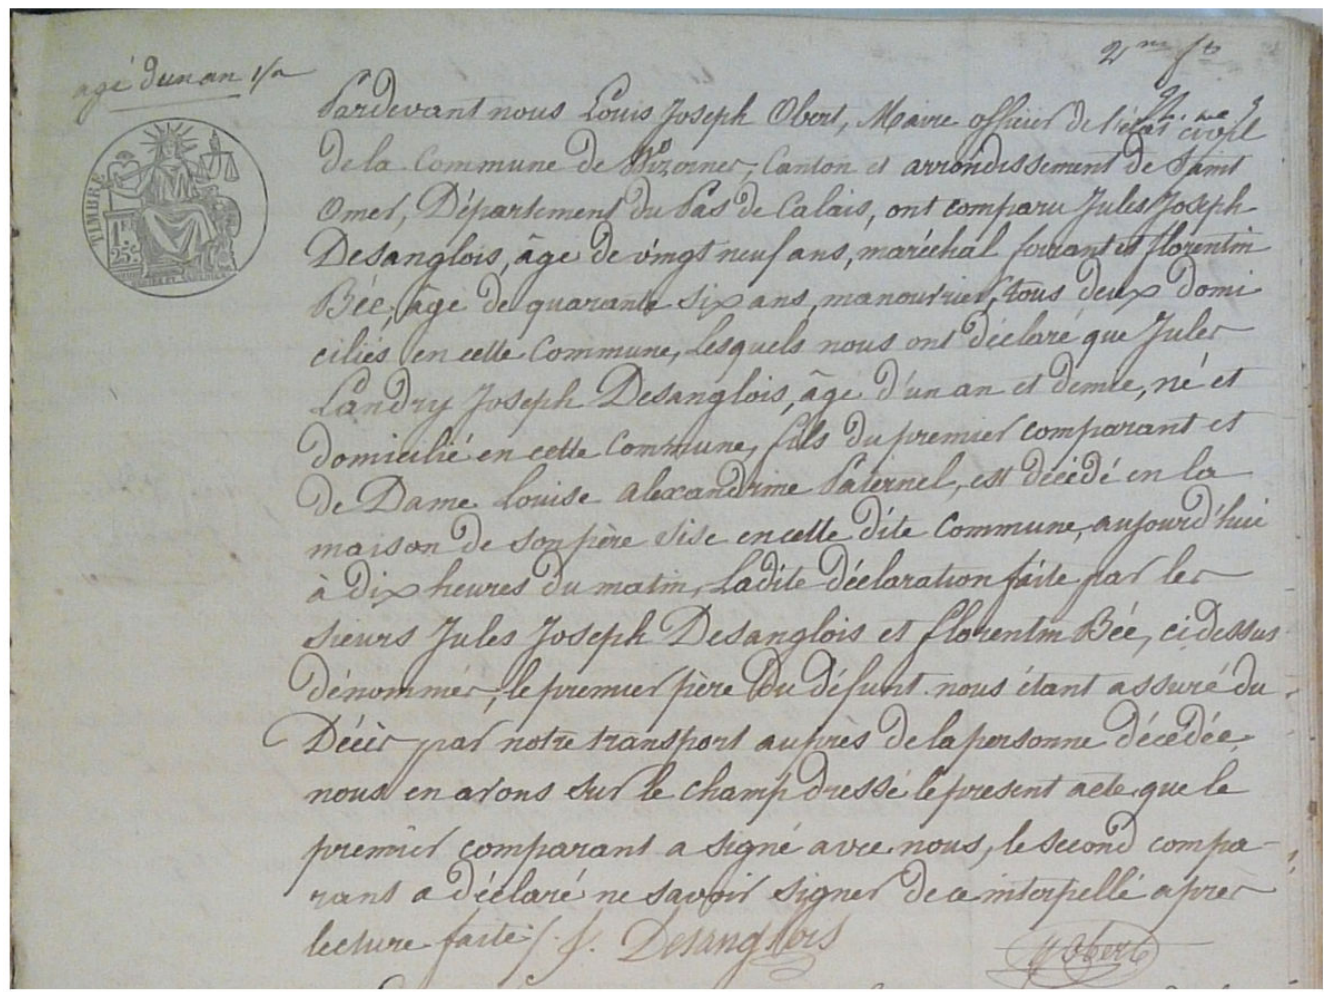 2me ft
agé d'un an 1/2
TIMBRE
25c
Pardevant nous Louis Joseph Obert, Maire officier de l'état civil
de la Commune de Wizernes, Canton et arrondissement de Saint
Omer, Département du Pas de Calais, ont comparu Jules Joseph
Desanglois, âgé de vingt neuf ans, maréchal ferrant et florentin
Bée, âgé de quarante six ans, manouvrier, tous deux domi
ciliés en cette Commune, Lesquels nous ont déclaré que Jules
Landry Joseph Desanglois, âgé d'un an et demie, né et
domicilié en cette Commune, fils du premier comparant et
de Dame Louise Alexandrine Paternel, est décédé en la
maison de son père sise en cette dite Commune, aujourd'hui
à dix heures du matin, Ladite déclaration faite par les
sieurs Jules Joseph Desanglois et florentin Bée, ci dessus
dénommés, le premier père du défunt. nous étant assuré du
Décès par notre transport auprès de la personne décédée,
nous en avons sur le champ dressé le présent acte que le
premier comparant a signé avec nous, le second compa-
rant a déclaré ne savoir signer de ce interpellé après
lecture faite /. J. Desanglois Obert